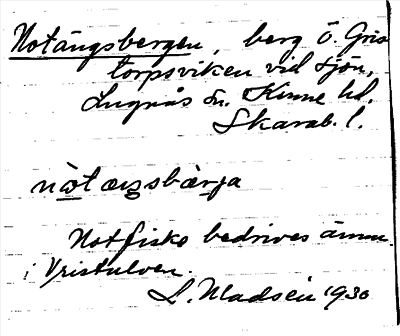 Notängsbergen, berg ö. Gris
torpsviken vid sjön,
Lugnås sn. Kinne hd.
Skarab. l.
nⱥt æŋsbærja
Notfiske bedrives ännu
i Vristulven.
L. Madsén 1930